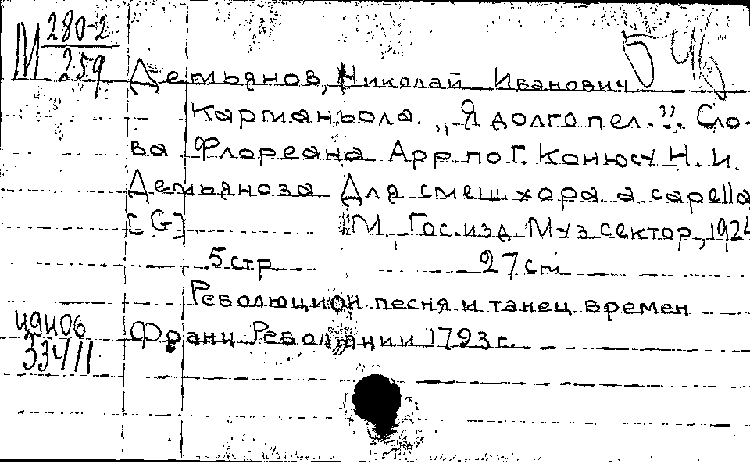 М 280-2
259
Демьянов, Николай Иванович
Карманьола. „Я долго пел.". Сло-
ва Флореана Арр по Г. Конюсу Н. И.
Демьянова Для смеш хора a capella
[G] М, Гос. изд Муз сектор, 1924
5 стр 27 cm
Революцион песня и танец времен
Франц Революции 1793 г.
334/11